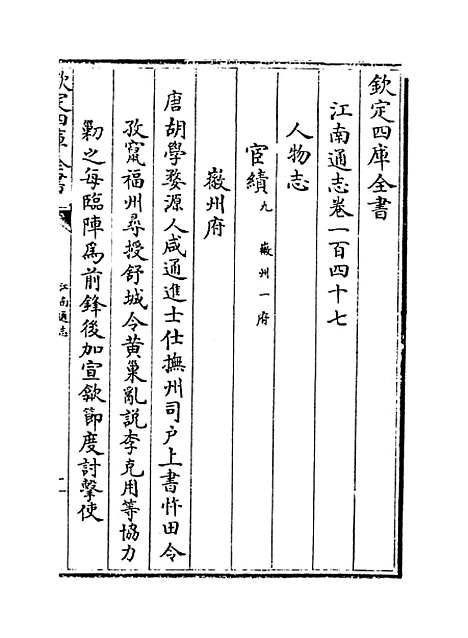 欽定四庫全書
江南通志卷一百四十七
人物志
宦績九 徽州一府
徽州府
唐胡學婺源人咸通進士仕撫州司户上書忤田令
孜竄福州尋授舒城令黄巢亂説李克用等協力
勦之每臨陣為前鋒後加宣歙節度討擊使
欽定四庫全書
江南通志
一